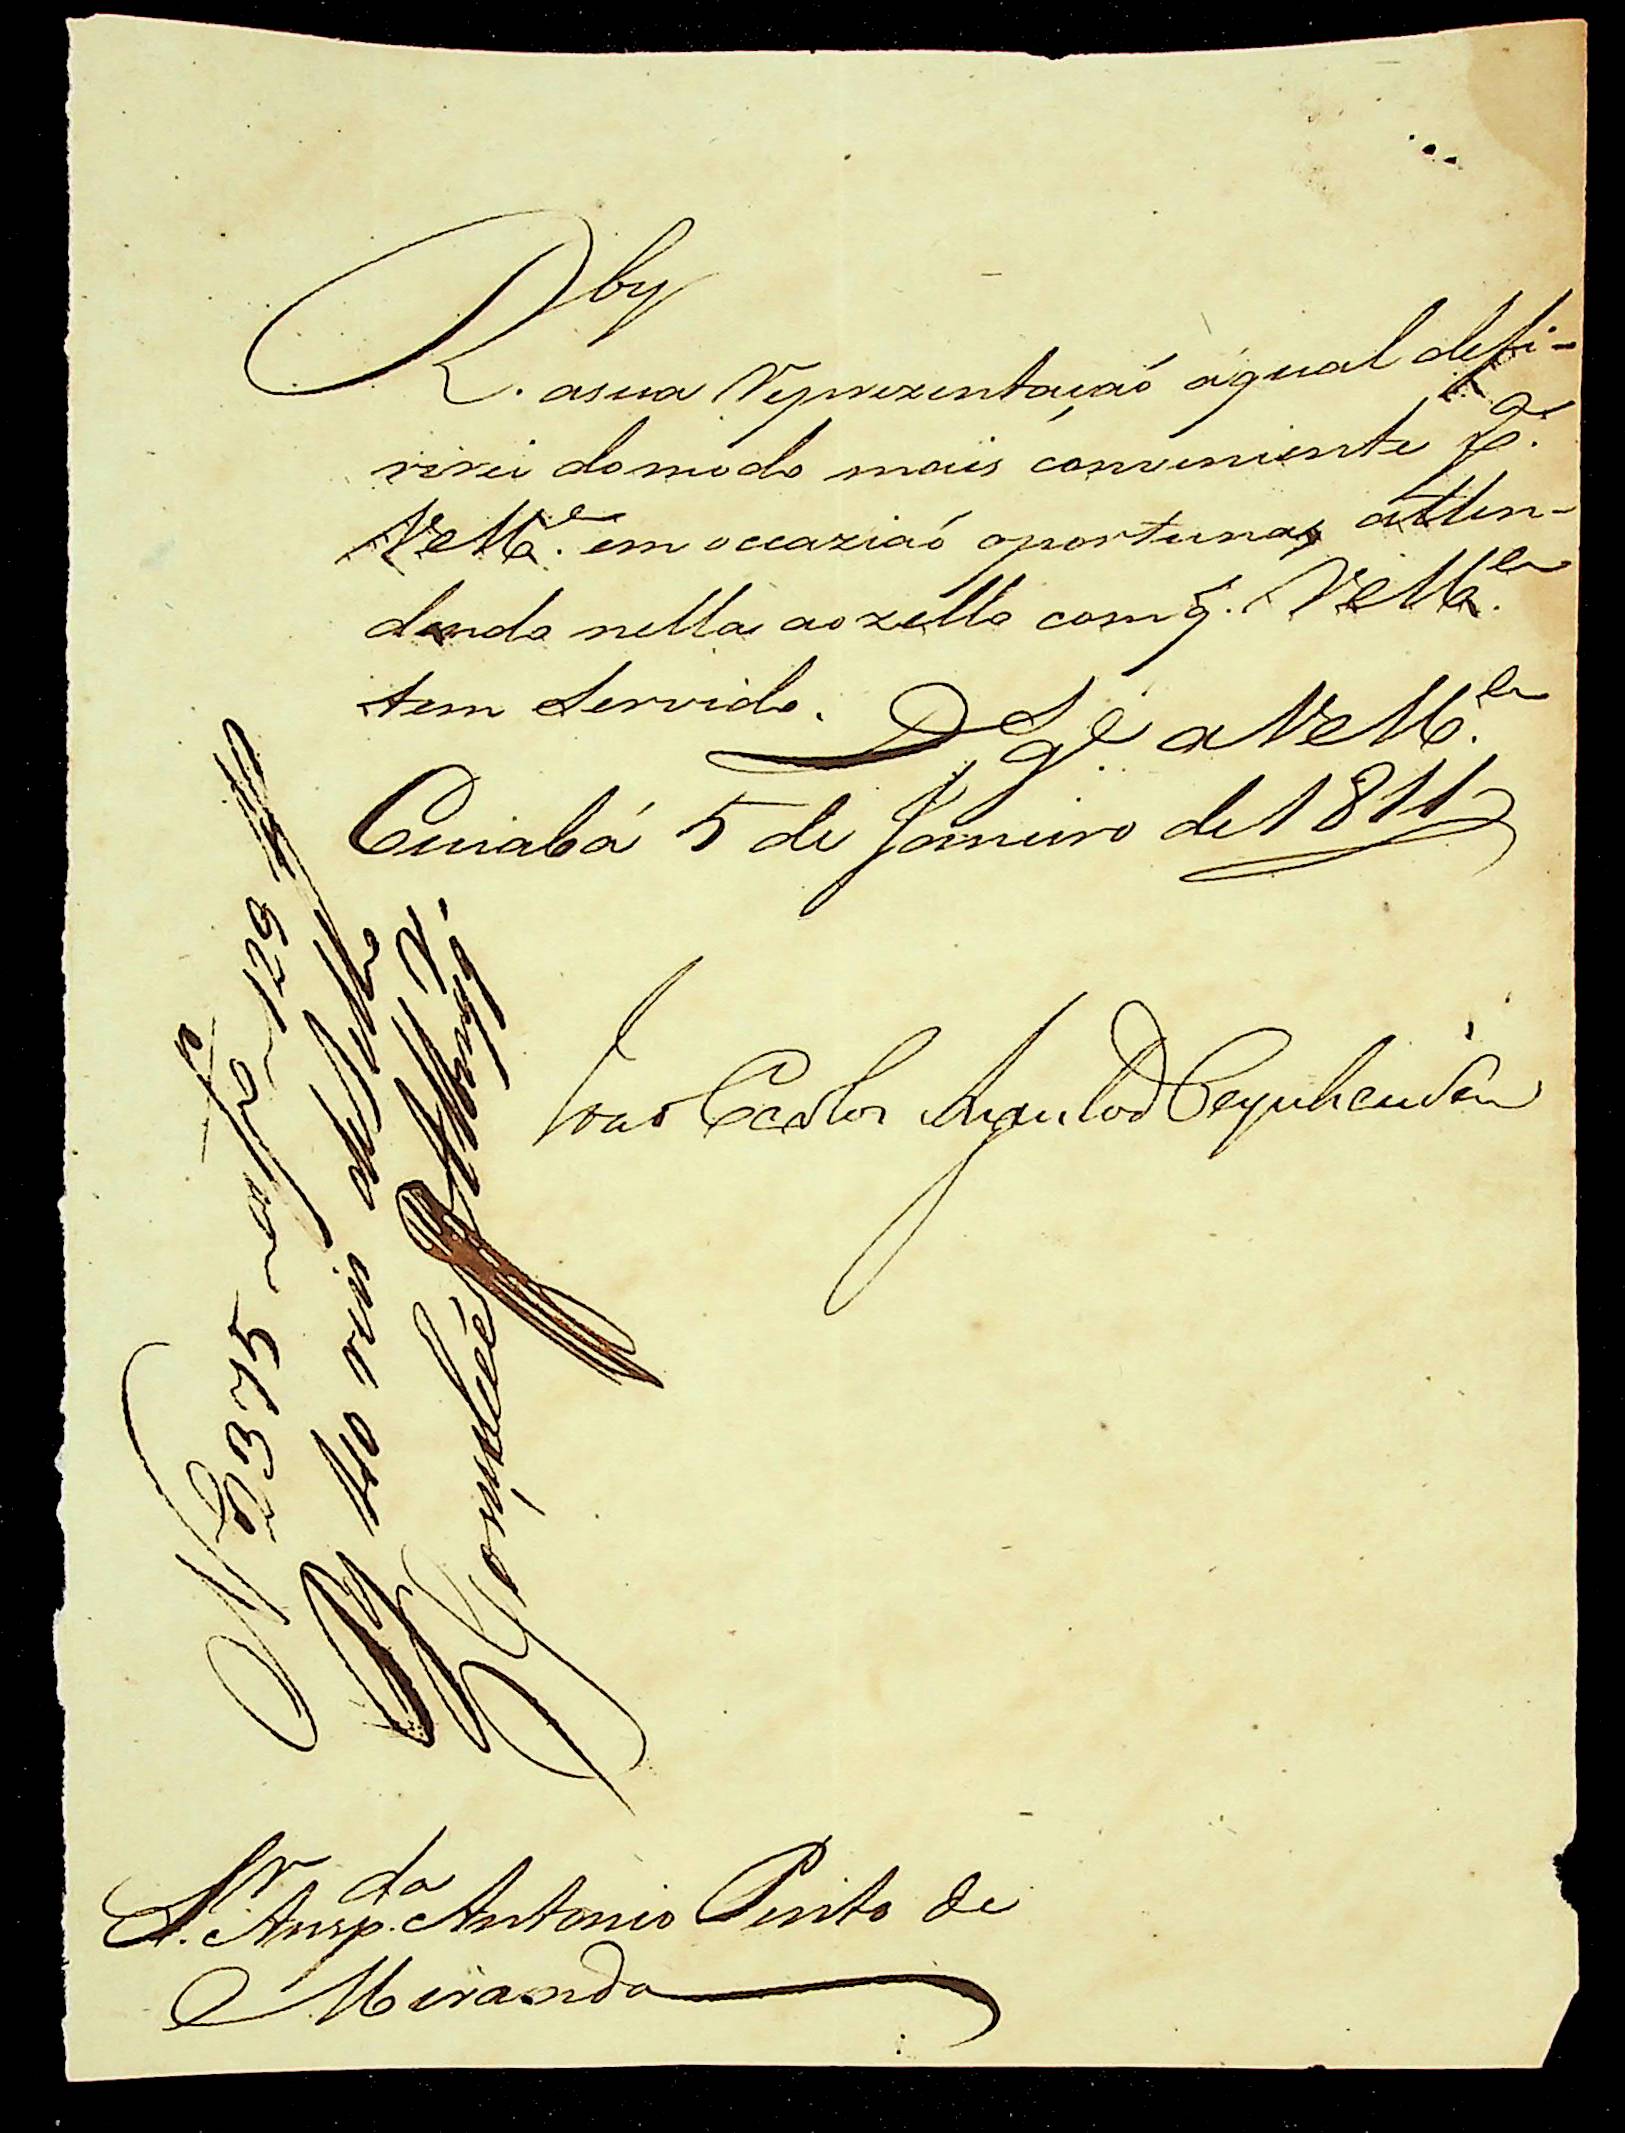 Rby
. asua Reprezentaçaõ áqual defi-
rirei domodo mais conveniente p.ª
VcM.ce em occaziaõ oportuna, atten-
dendo nella ao zello com q. VcM.ce
tem Servido. D.s g.e a VcM.ce
Cuiabá 5 de Janeiro de 1811
João Carlos Augusto D'Oeynhausen
N 2375
Pg 40 reis de Sello
S.r Ansp.da Antonio Pinto de
Miranda